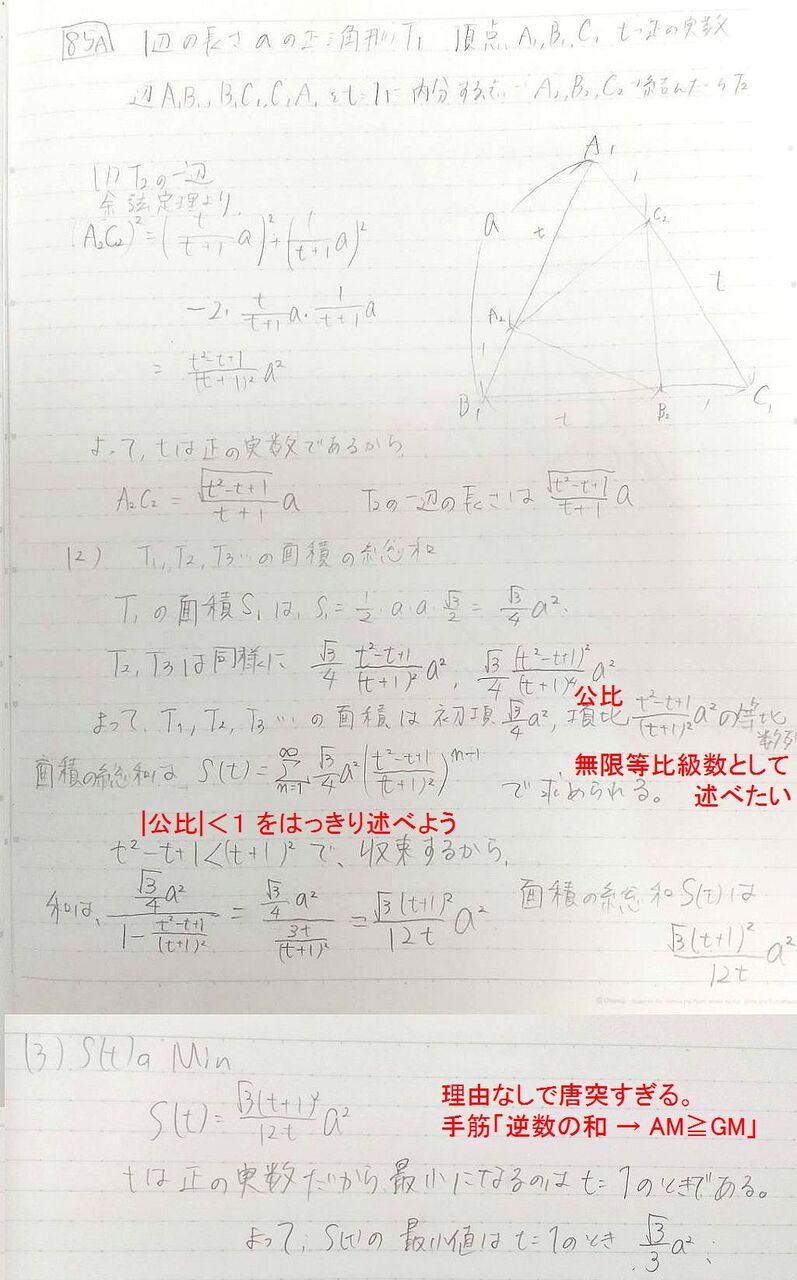 85A 1辺の長さaの正三角形T₁ 頂点A₁,B₁,C₁ t:正の実数
辺A₁B₁, B₁C₁, C₁A₁をt:1に内分する点 A₂,B₂,C₂ 結んだらT₂
(1) T₂の一辺
余法定理より,
(A₂C₂)² = (t/(t+1) a)² + (1/(t+1) a)²
-2・t/(t+1) a・1/(t+1) a
= (t²-t+1)/(t+1)² a²
A₁
1
C₂
a
t
t
A₂
1
B₁
t
B₂
1
C₁
よって, tは正の実数であるから,
A₂C₂ = √(t²-t+1)/(t+1) a T₂の一辺の長さは √(t²-t+1)/(t+1) a
(2) T₁, T₂, T₃…の面積の総和
T₁の面積S₁は, S₁ = 1/2・a・a・√3/2 = √3/4 a².
T₂, T₃は同様に √3/4 (t²-t+1)/(t+1)² a², √3/4 (t²-t+1)²/(t+1)⁴ a²
公比
よって, T₁, T₂, T₃…の面積は初項 √3/4 a², 項比 (t²-t+1)/(t+1)² a² の等比数列
面積の総和は S(t) = Σ[n=1→∞] √3/4 a² ((t²-t+1)/(t+1)²)ⁿ⁻¹ で求められる。
無限等比級数として
述べたい
|公比|<1 をはっきり述べよう
t²-t+1<(t+1)² で、収束するから,
和は, (√3/4 a²)/(1-(t²-t+1)/(t+1)²) = (√3/4 a²)/(3t/(t+1)²) = √3(t+1)²/12t a² 面積の総和S(t)は
√3(t+1)²/12t a²
(3) S(t)の Min
S(t) = √3(t+1)²/12t a²
理由なしで唐突すぎる。
手筋「逆数の和 → AM≧GM」
tは正の実数だから, 最小になるのは t=1のときである。
よって, S(t)の最小値は t=1のとき √3/3 a².